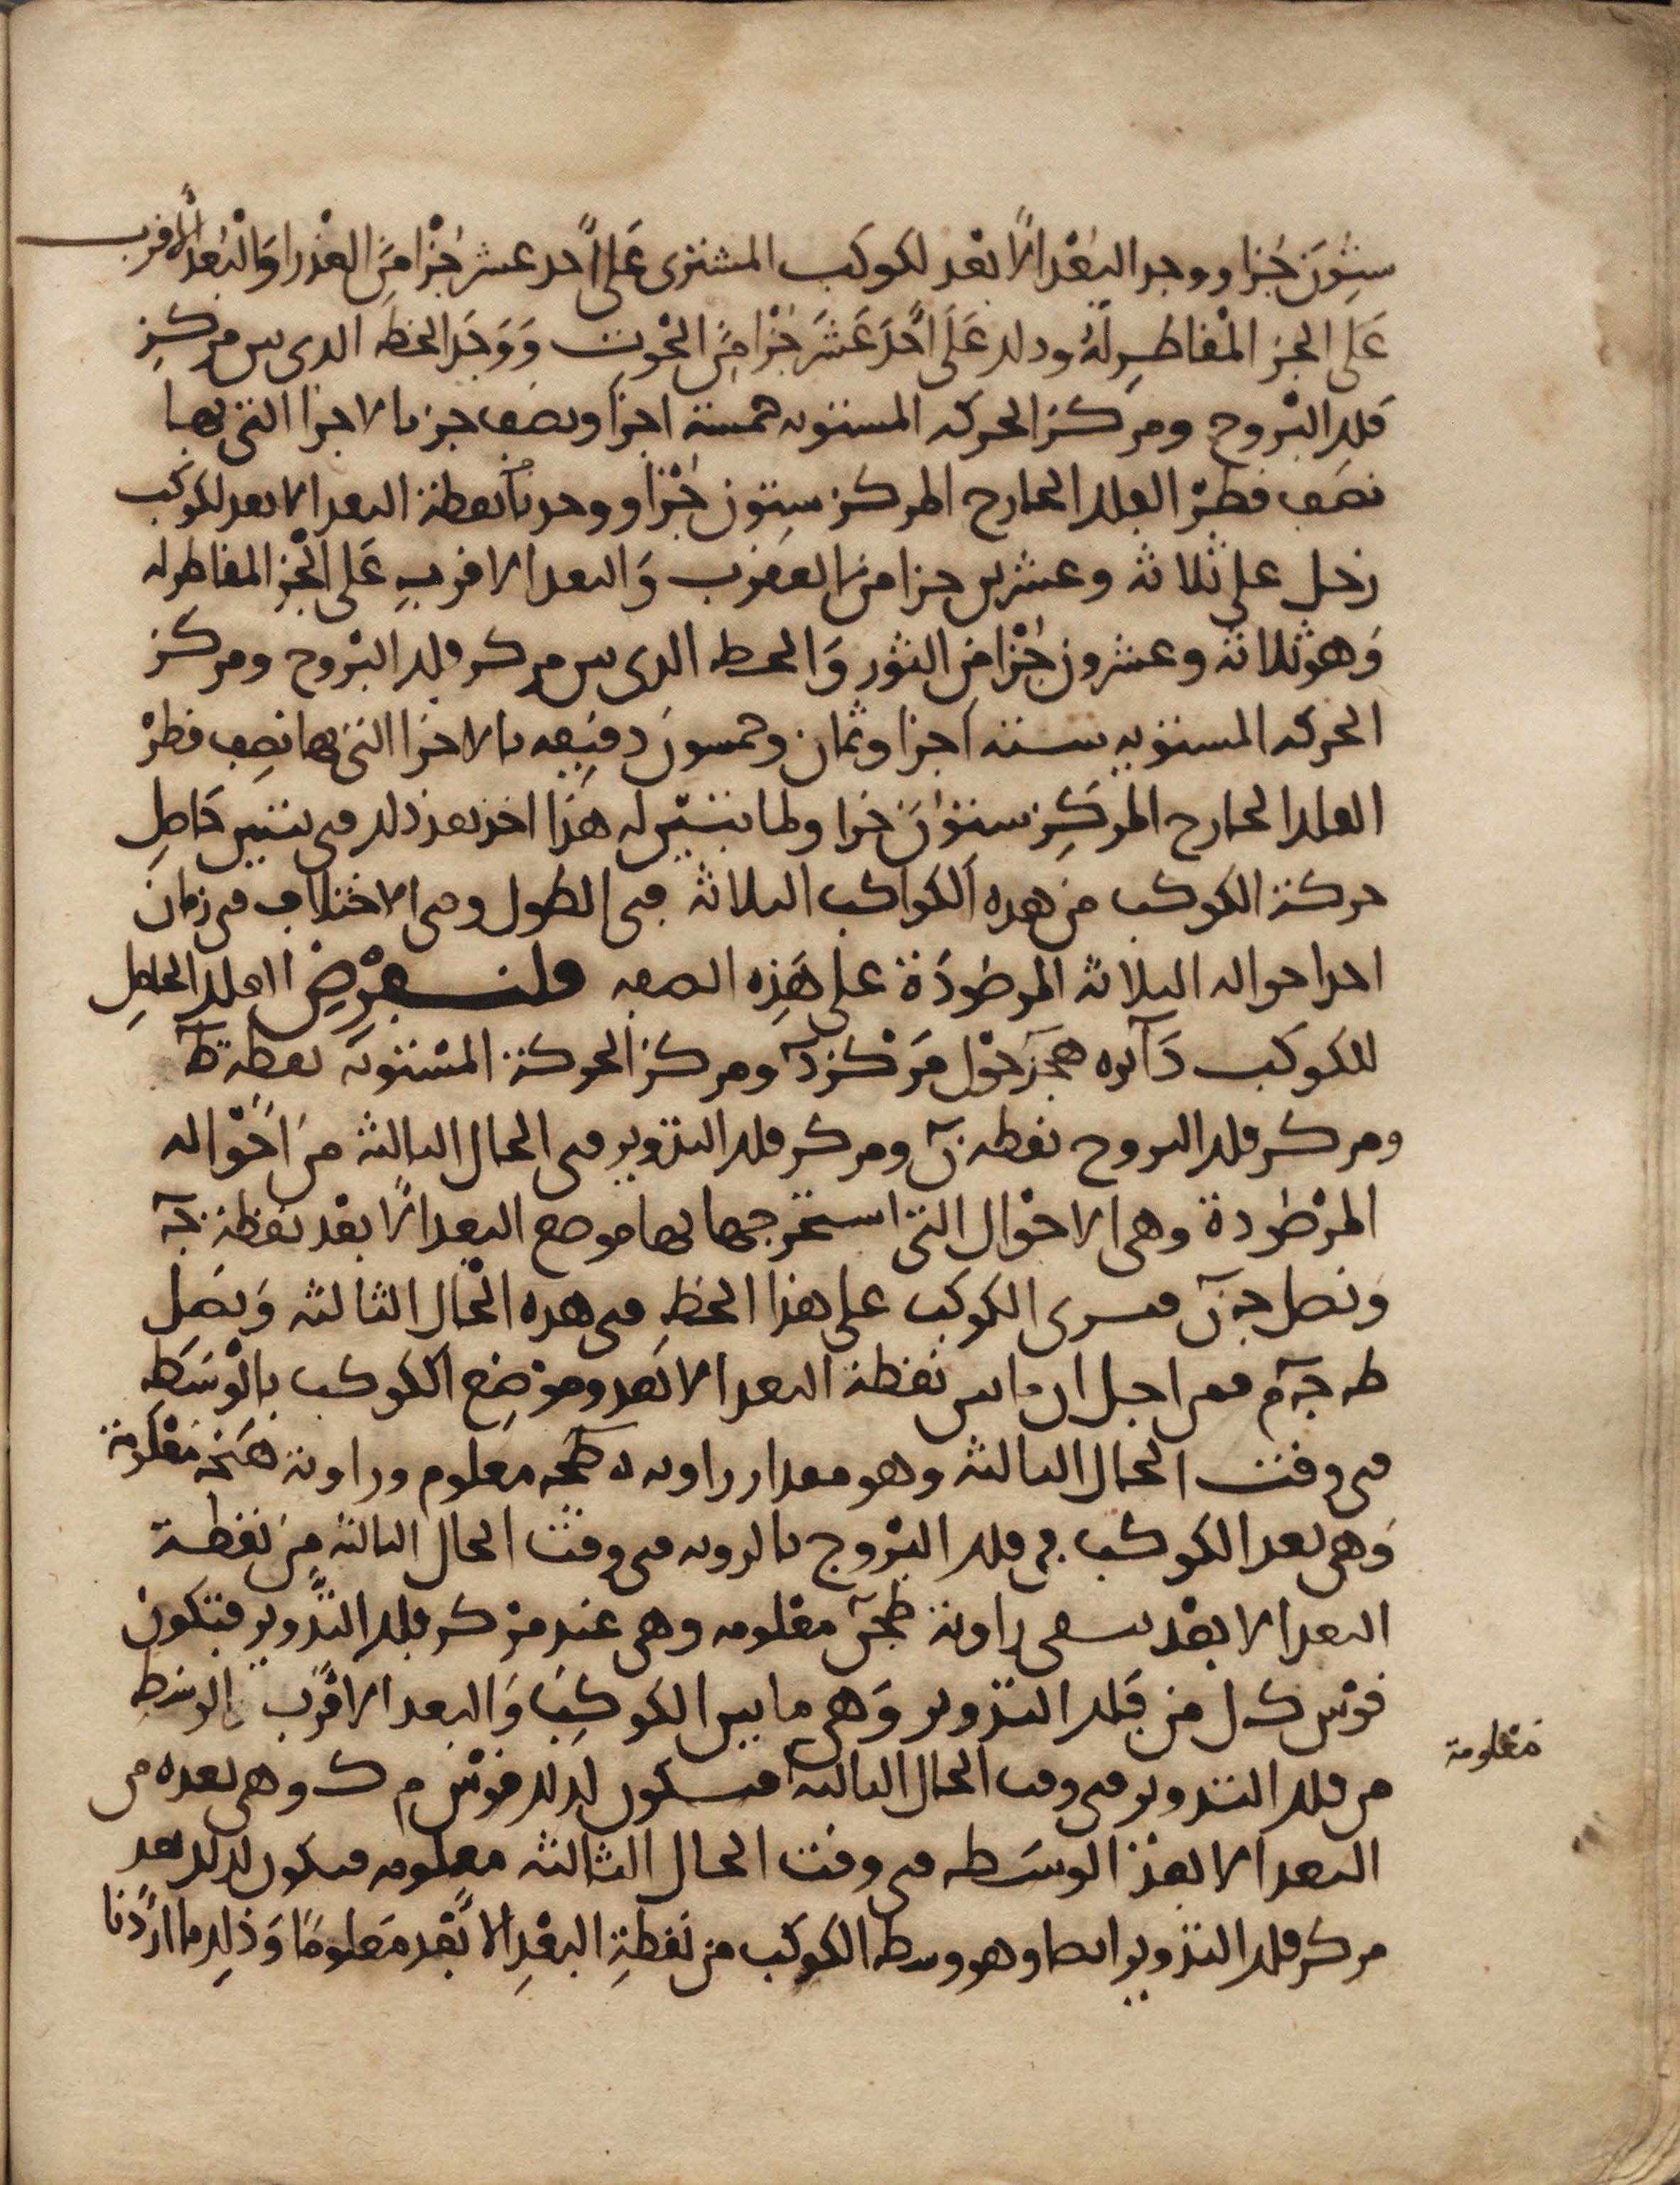 ستون جزا ووجد البعد الابعد لكوكب المشترى على احد عشر جزا من العذرا والبعد الاقرب
على الجز المقاطر له وذلك على احد عشر جزا من الحوت ووجد الخط الذى بين مركز
فلك البروج ومركز الحركه المستويه خمسة اجزا ونصف جز بالاجزا التى بها
نصف قطر الفلك الخارج المركز ستون جزا ووجدنا نقطة البعد الابعد لكوكب
زحل على ثلاثة وعشرين جزا من العقرب والبعد الاقرب على الجز المقاطر له
وهو ثلاثة وعشرون جزا من الثور والخط الذى بين مركز فلك البروج ومركز
الحركه المستويه ستة اجزا وثمان وخمسون دقيقه بالاجزا التى بها نصف قطر
الفلك الخارج المركز ستون جزا ولما تبين له هذا اخذ بعد ذلك فى تبيين حاصل
حركة الكوكب من هذه الكواكب الثلاثة فى الطول وفى الاختلاف فى زمان
احد احواله الثلاثة المرصودة على هذه الصفه فلنفرض الفلك الحامل
للكوكب دائره هجز حول مركز د ومركز الحركة المستويه نقطة ط
ومركز فلك البروج نقطه ن ومركز فلك التدوير فى الحال الثالثة من احواله
المرصودة وهى الاحوال التى استخرجها بها موضع البعد الابعد نقطة ج
ونصل ج ن فسرى الكوكب على هذا الخط فى هذه الحال الثالثة ونصل
ط ج م فمن اجل ان ما بين نقطة البعد الابعد وموضع الكوكب بالوسط
فى وقت الحال الثالثة وهو مقدار زاويه ه ط ج معلوم وزاوية هنج معلومة
وهى بعد الكوكب فى فلك البروج بالرويه فى وقت الحال الثالثة من نقطة
البعد الابعد تبقى زاوية طجن معلومه وهى عند مركز فلك التدوير فتكون
قوس ك ل من فلك التدوير وهى ما بين الكوكب والبعد الاقرب الوسط
من فلك التدوير فى وقت الحال الثالثة معلومة فتكون لذلك قوس م ك وهى بعده من
البعد الابعد الوسط فى وقت الحال الثالثة معلومه فيكون لذلك بعد
مركز فلك التدوير ايضا وهو وسط الكوكب من نقطة البعد الابعد معلوما وذلك ما اردنا